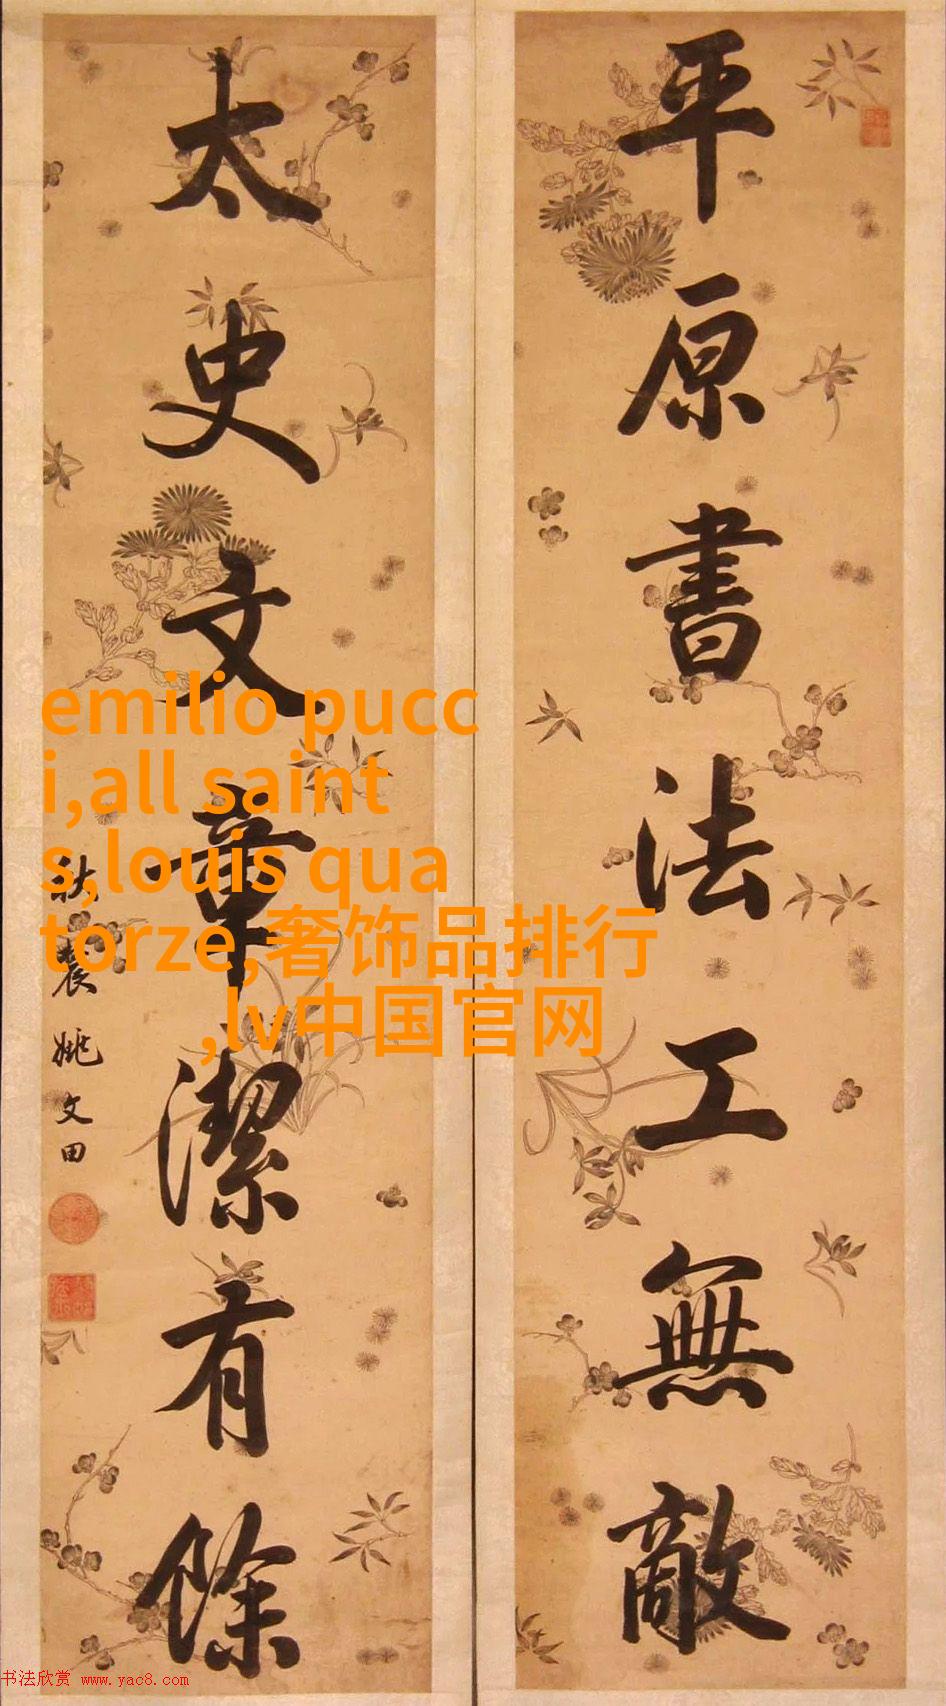 平原書法工無敵
太史文章潔有餘
秋農姚文田
emilio pucc
i,all saint
s,louis qua
torze,奢饰品排行
,lv中国官网
书法欣赏 www.yac8.com